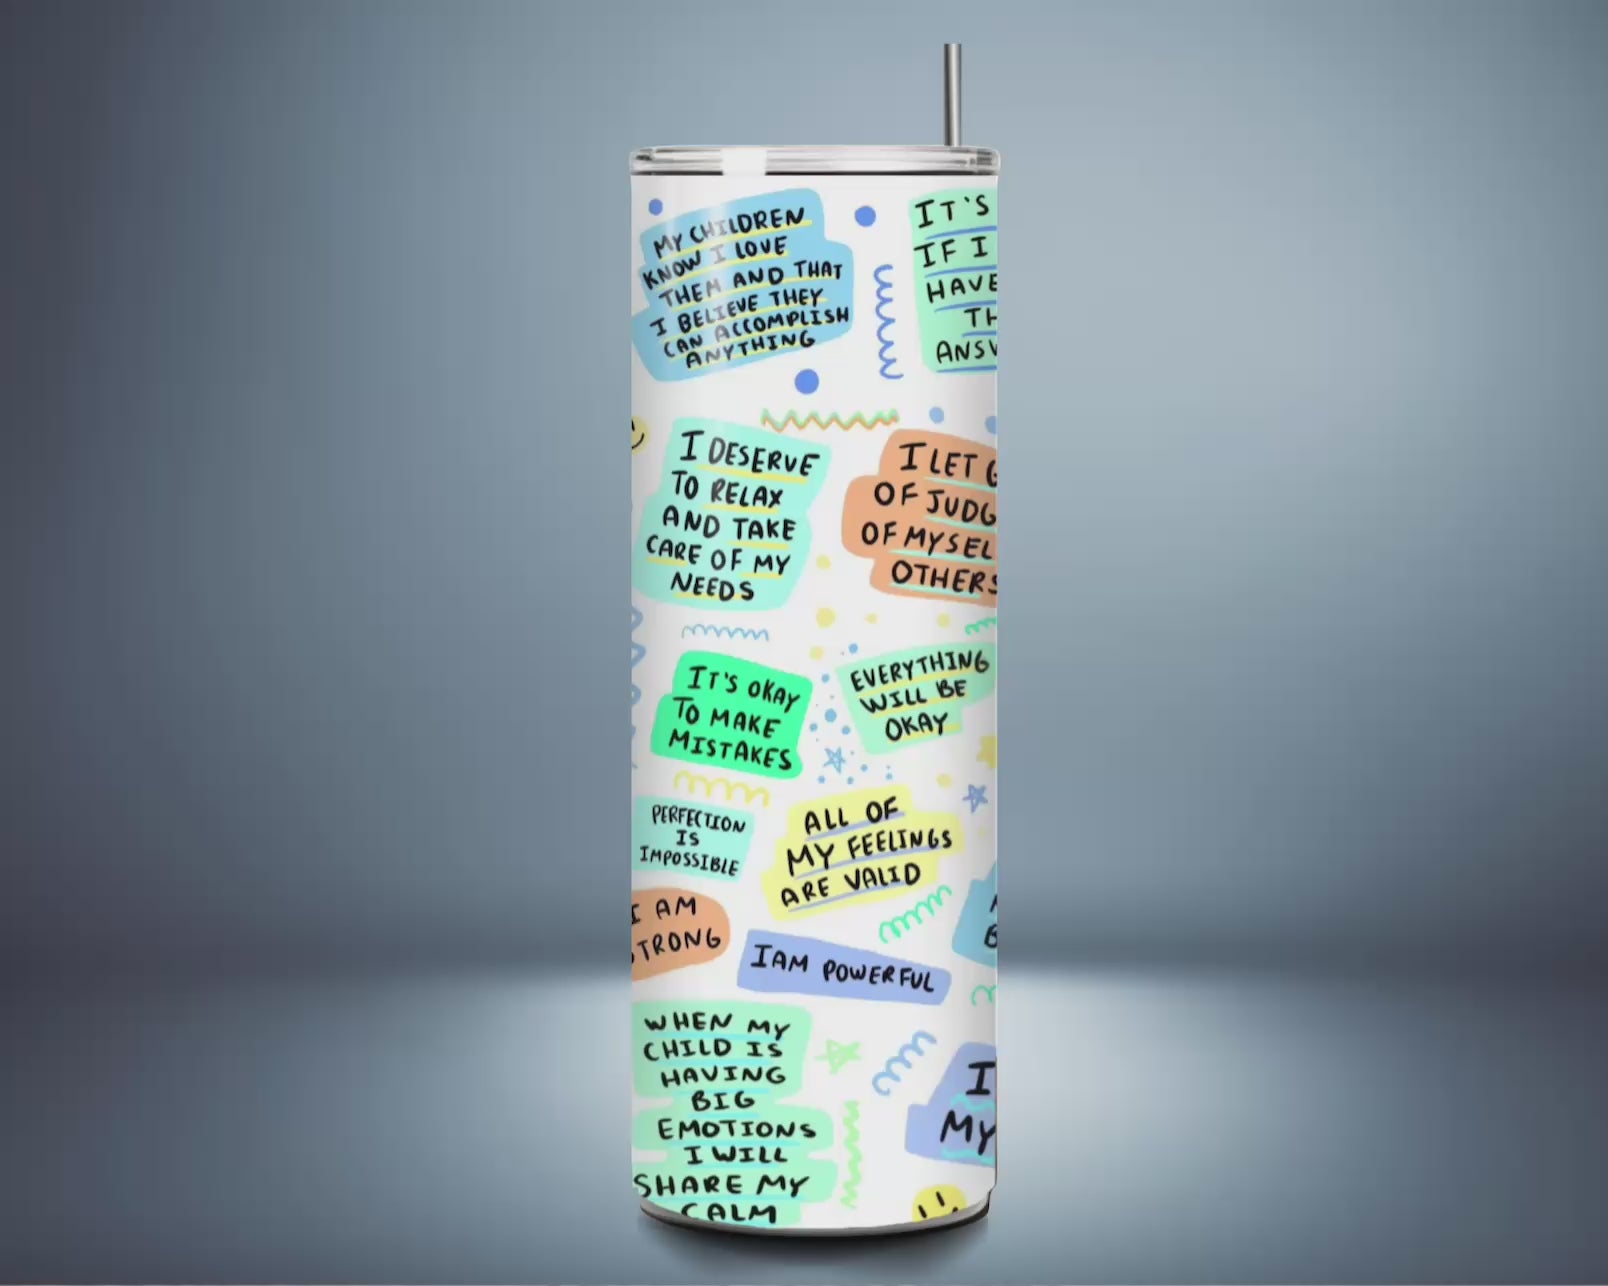 MY CHILDREN
KNOW I LOVE
THEM AND THAT
I BELIEVE THEY
CAN ACCOMPLISH
ANYTHING
IT'S
IF I
HAVE
TH
ANSW
I DESERVE
TO RELAX
AND TAKE
CARE OF MY
NEEDS
I LET G
OF JUDG
OF MYSEL
OTHERS
IT'S OKAY
TO MAKE
MISTAKES
EVERYTHING
WILL BE
OKAY
PERFECTION
IS
IMPOSSIBLE
ALL OF
MY FEELINGS
ARE VALID
I AM
STRONG
I AM POWERFUL
WHEN MY
CHILD IS
HAVING
BIG
EMOTIONS
I WILL
SHARE MY
CALM
I
MY